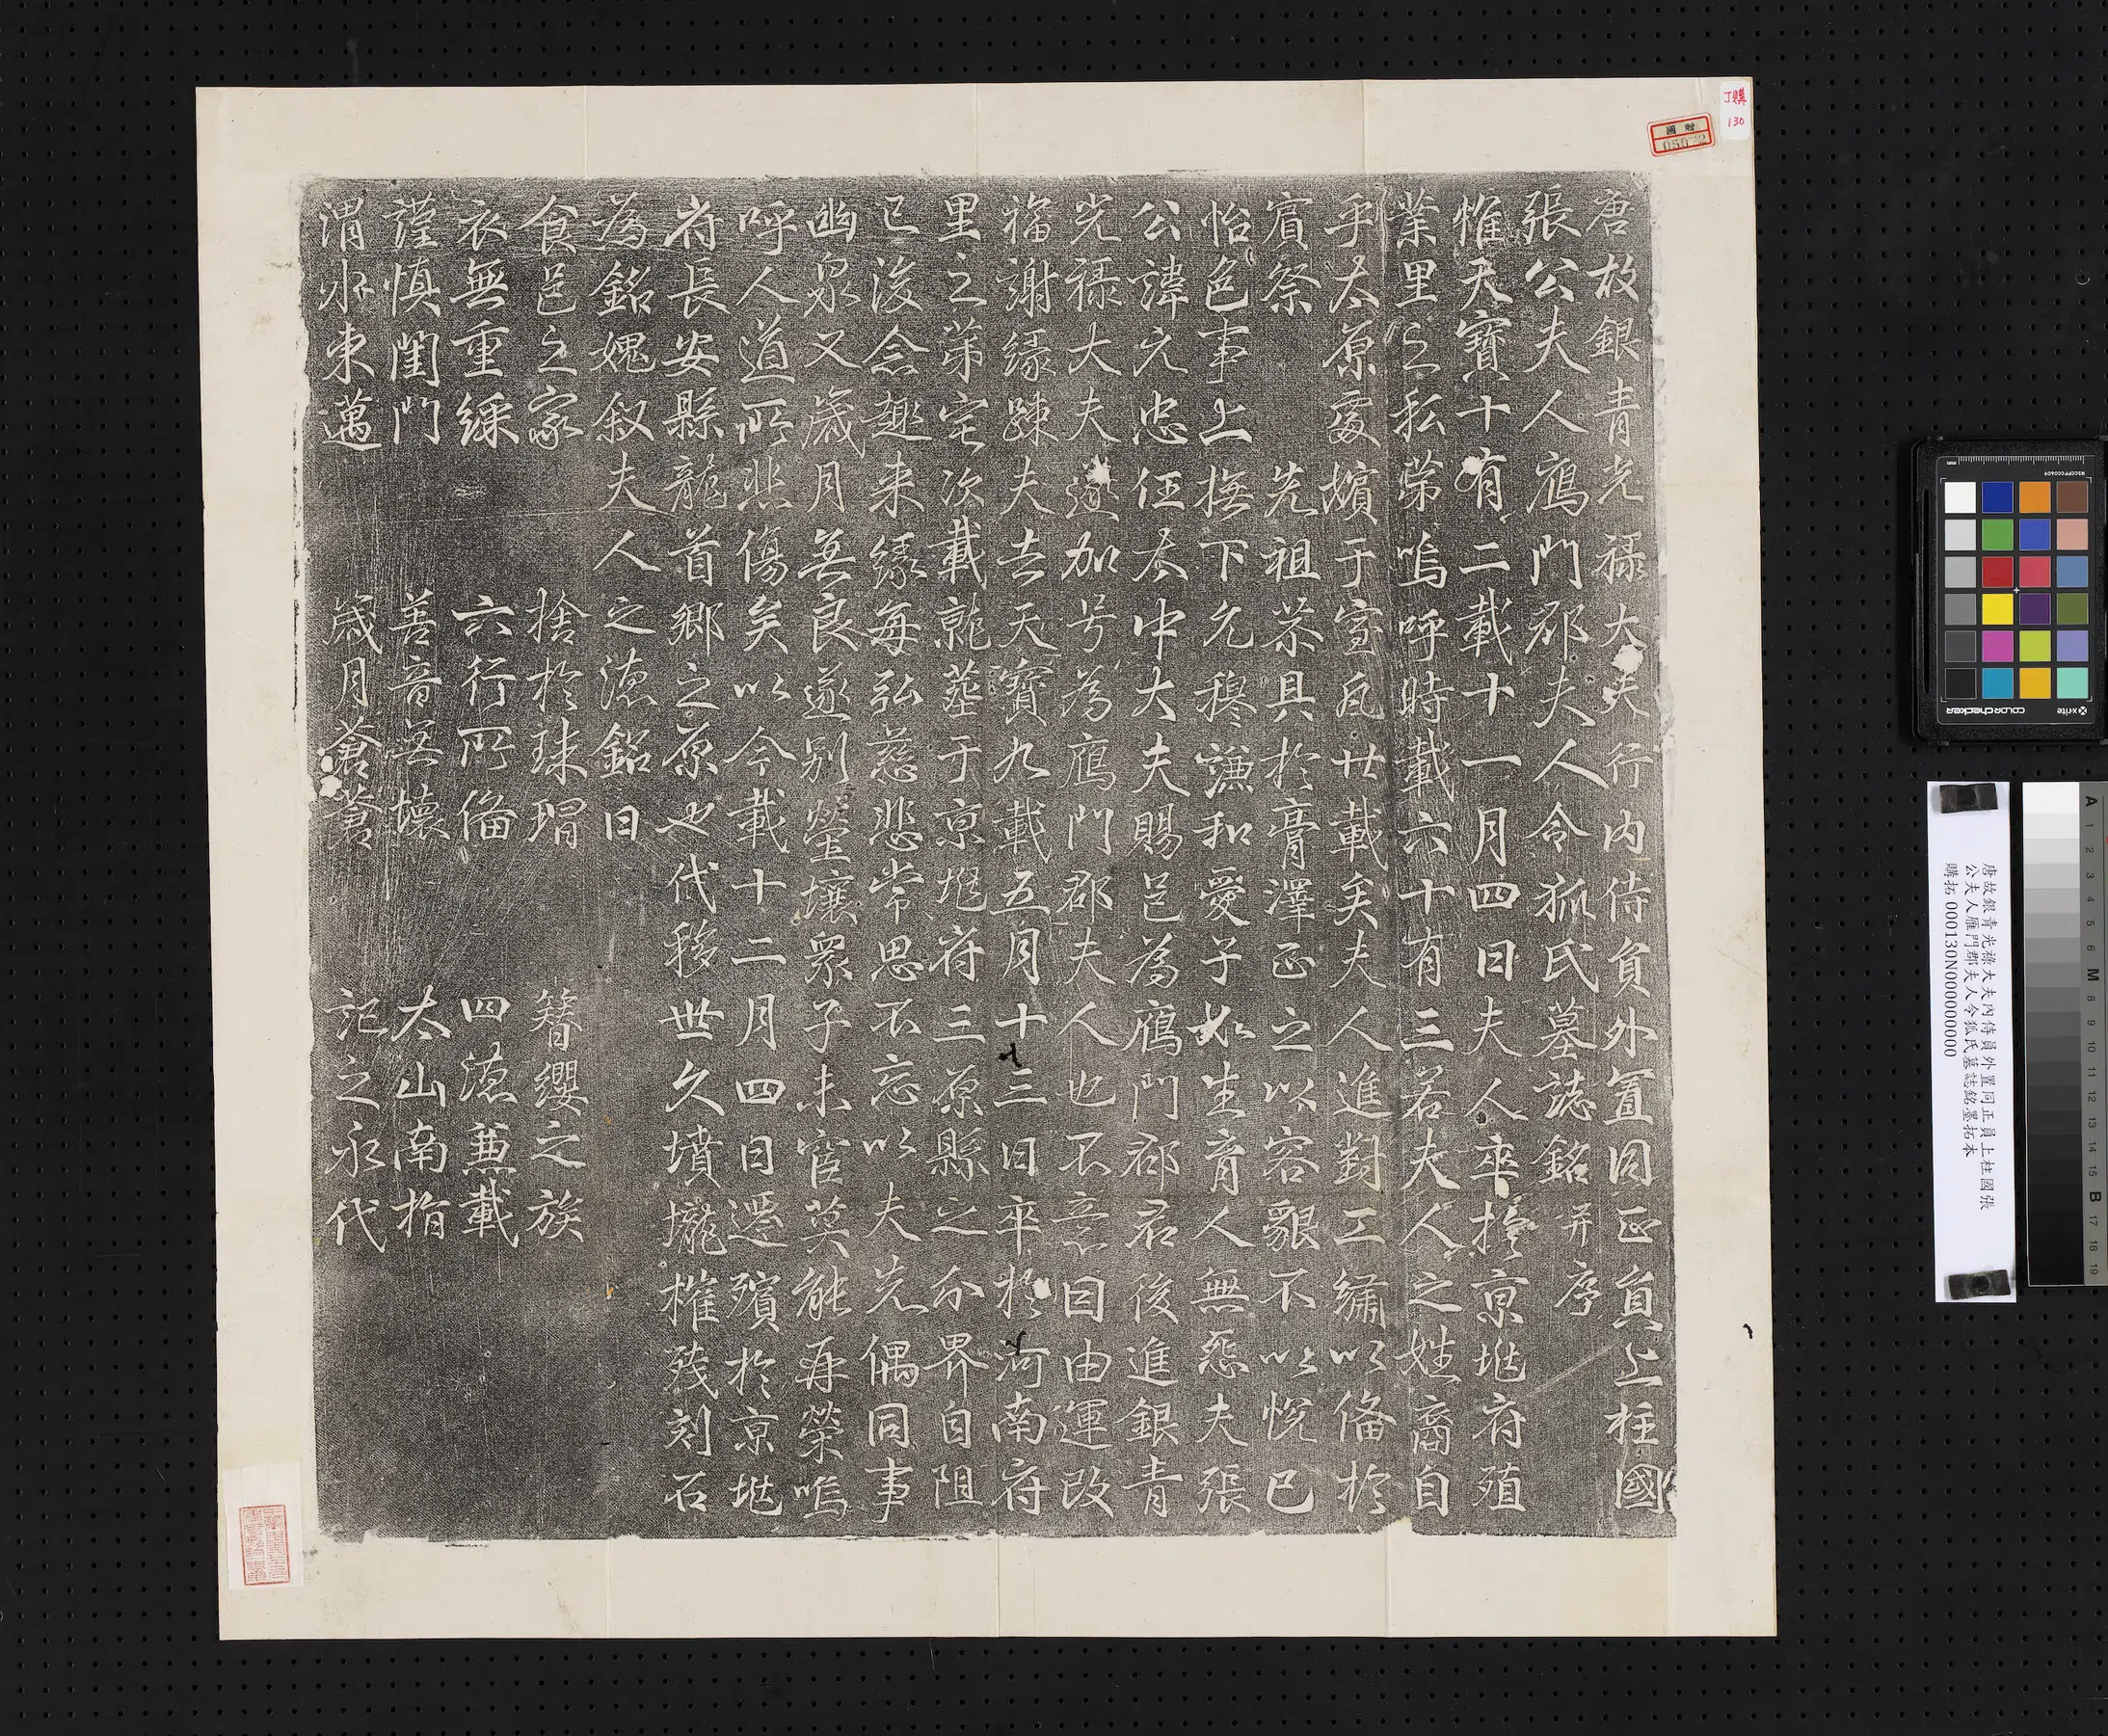 唐故銀青光祿大夫行内侍負外置同正員上柱國
張公夫人鴈門郡夫人令狐氏墓誌銘并序
惟天寶十有二載十一月四日夫人卒於京地府殖
業里之私第嗚呼時載六十有三若夫人之姓裔自
乎太原處嬪于室凡廿載矣夫人進對工繡以俻於
賓祭 先祖恭具於膏澤正之以容皃不以悅已
怡色事上撫下允穆謙和愛子如生育人無怨夫張
公諱元忠任太中大夫賜邑為鴈門郡君後進銀青
光祿大夫遂加号為鴈門郡夫人也不意日由運改
福謝緣踈夫去天寶九載五月十三日卒於河南府
里之第宅次載就塟于京地府三原縣之分界自阻
已後念趣来緣每弘慈悲常思不忘以夫先偶同事
幽泉又歲月無良遂别塋壤衆子未宦莫能再榮嗚
呼人道所悲傷矣以今載十二月四日遷殯於京地
府長安縣龍首鄉之原也代移世久墳壠摧殘刻石
為銘媿叙夫人之德銘曰
食邑之家 捨於珠瑁 簪纓之族
衣無重綵 六行所俻 四德兼載
謹慎閨門 善音無壞 太山南指
渭水東邁 歲月蒼蒼 記之永代
丁購
130
國贈
05072
唐故銀青光祿大夫內侍員外置同正員上柱國張
公夫人雁門郡夫人令狐氏墓誌銘墨拓本
購拓 000130N000000000
x-rite
colorchecker
mm
MSCCPPCC0609
A 1 2 3 4 5 6 M 8 9 10 11 12 13 14 15 B 17 18 19